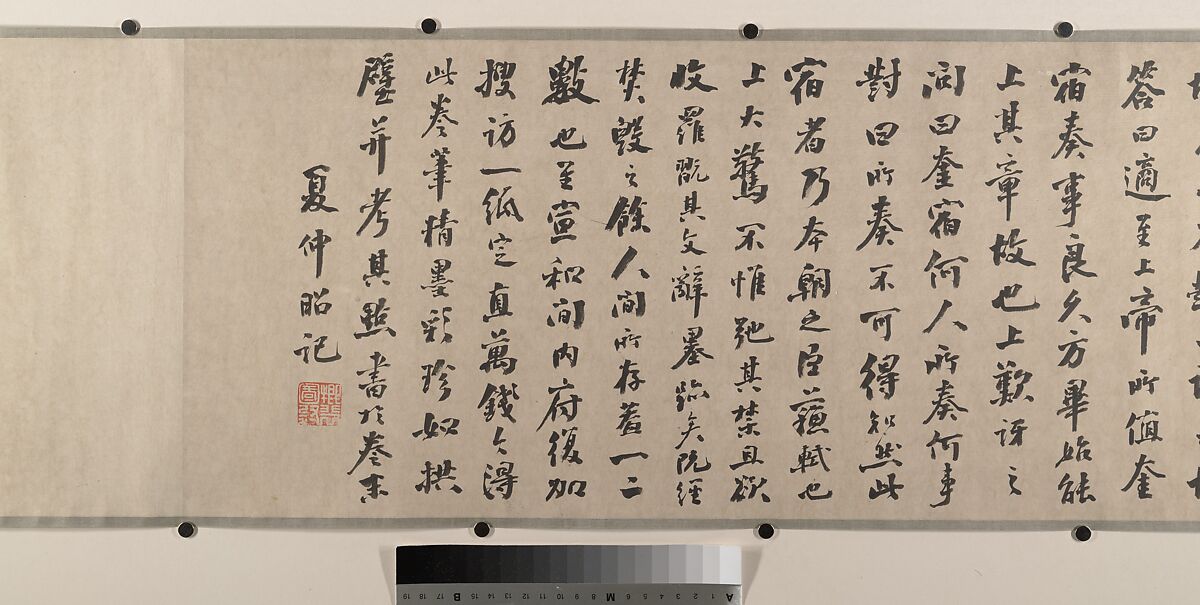 答曰適至上帝所值奎
宿奏事良久方畢始能
上其章故也上歎訝之
問曰奎宿何人所奏何事
對曰所奏不可得知然此
宿者乃本朝之臣蘇軾也
上大驚不惟弛其禁且欲
收羅翫其文辭墨跡矣既經
焚毀之餘人間所存蓋一二
數也至宣和間內府復加
搜訪一紙定直萬錢今得
此卷筆精墨彩珍如拱
璧并考其點畫於卷末
夏仲昭記
A 1 2 3 4 5 6 M 8 9 10 11 12 13 14 15 B 17 18 19